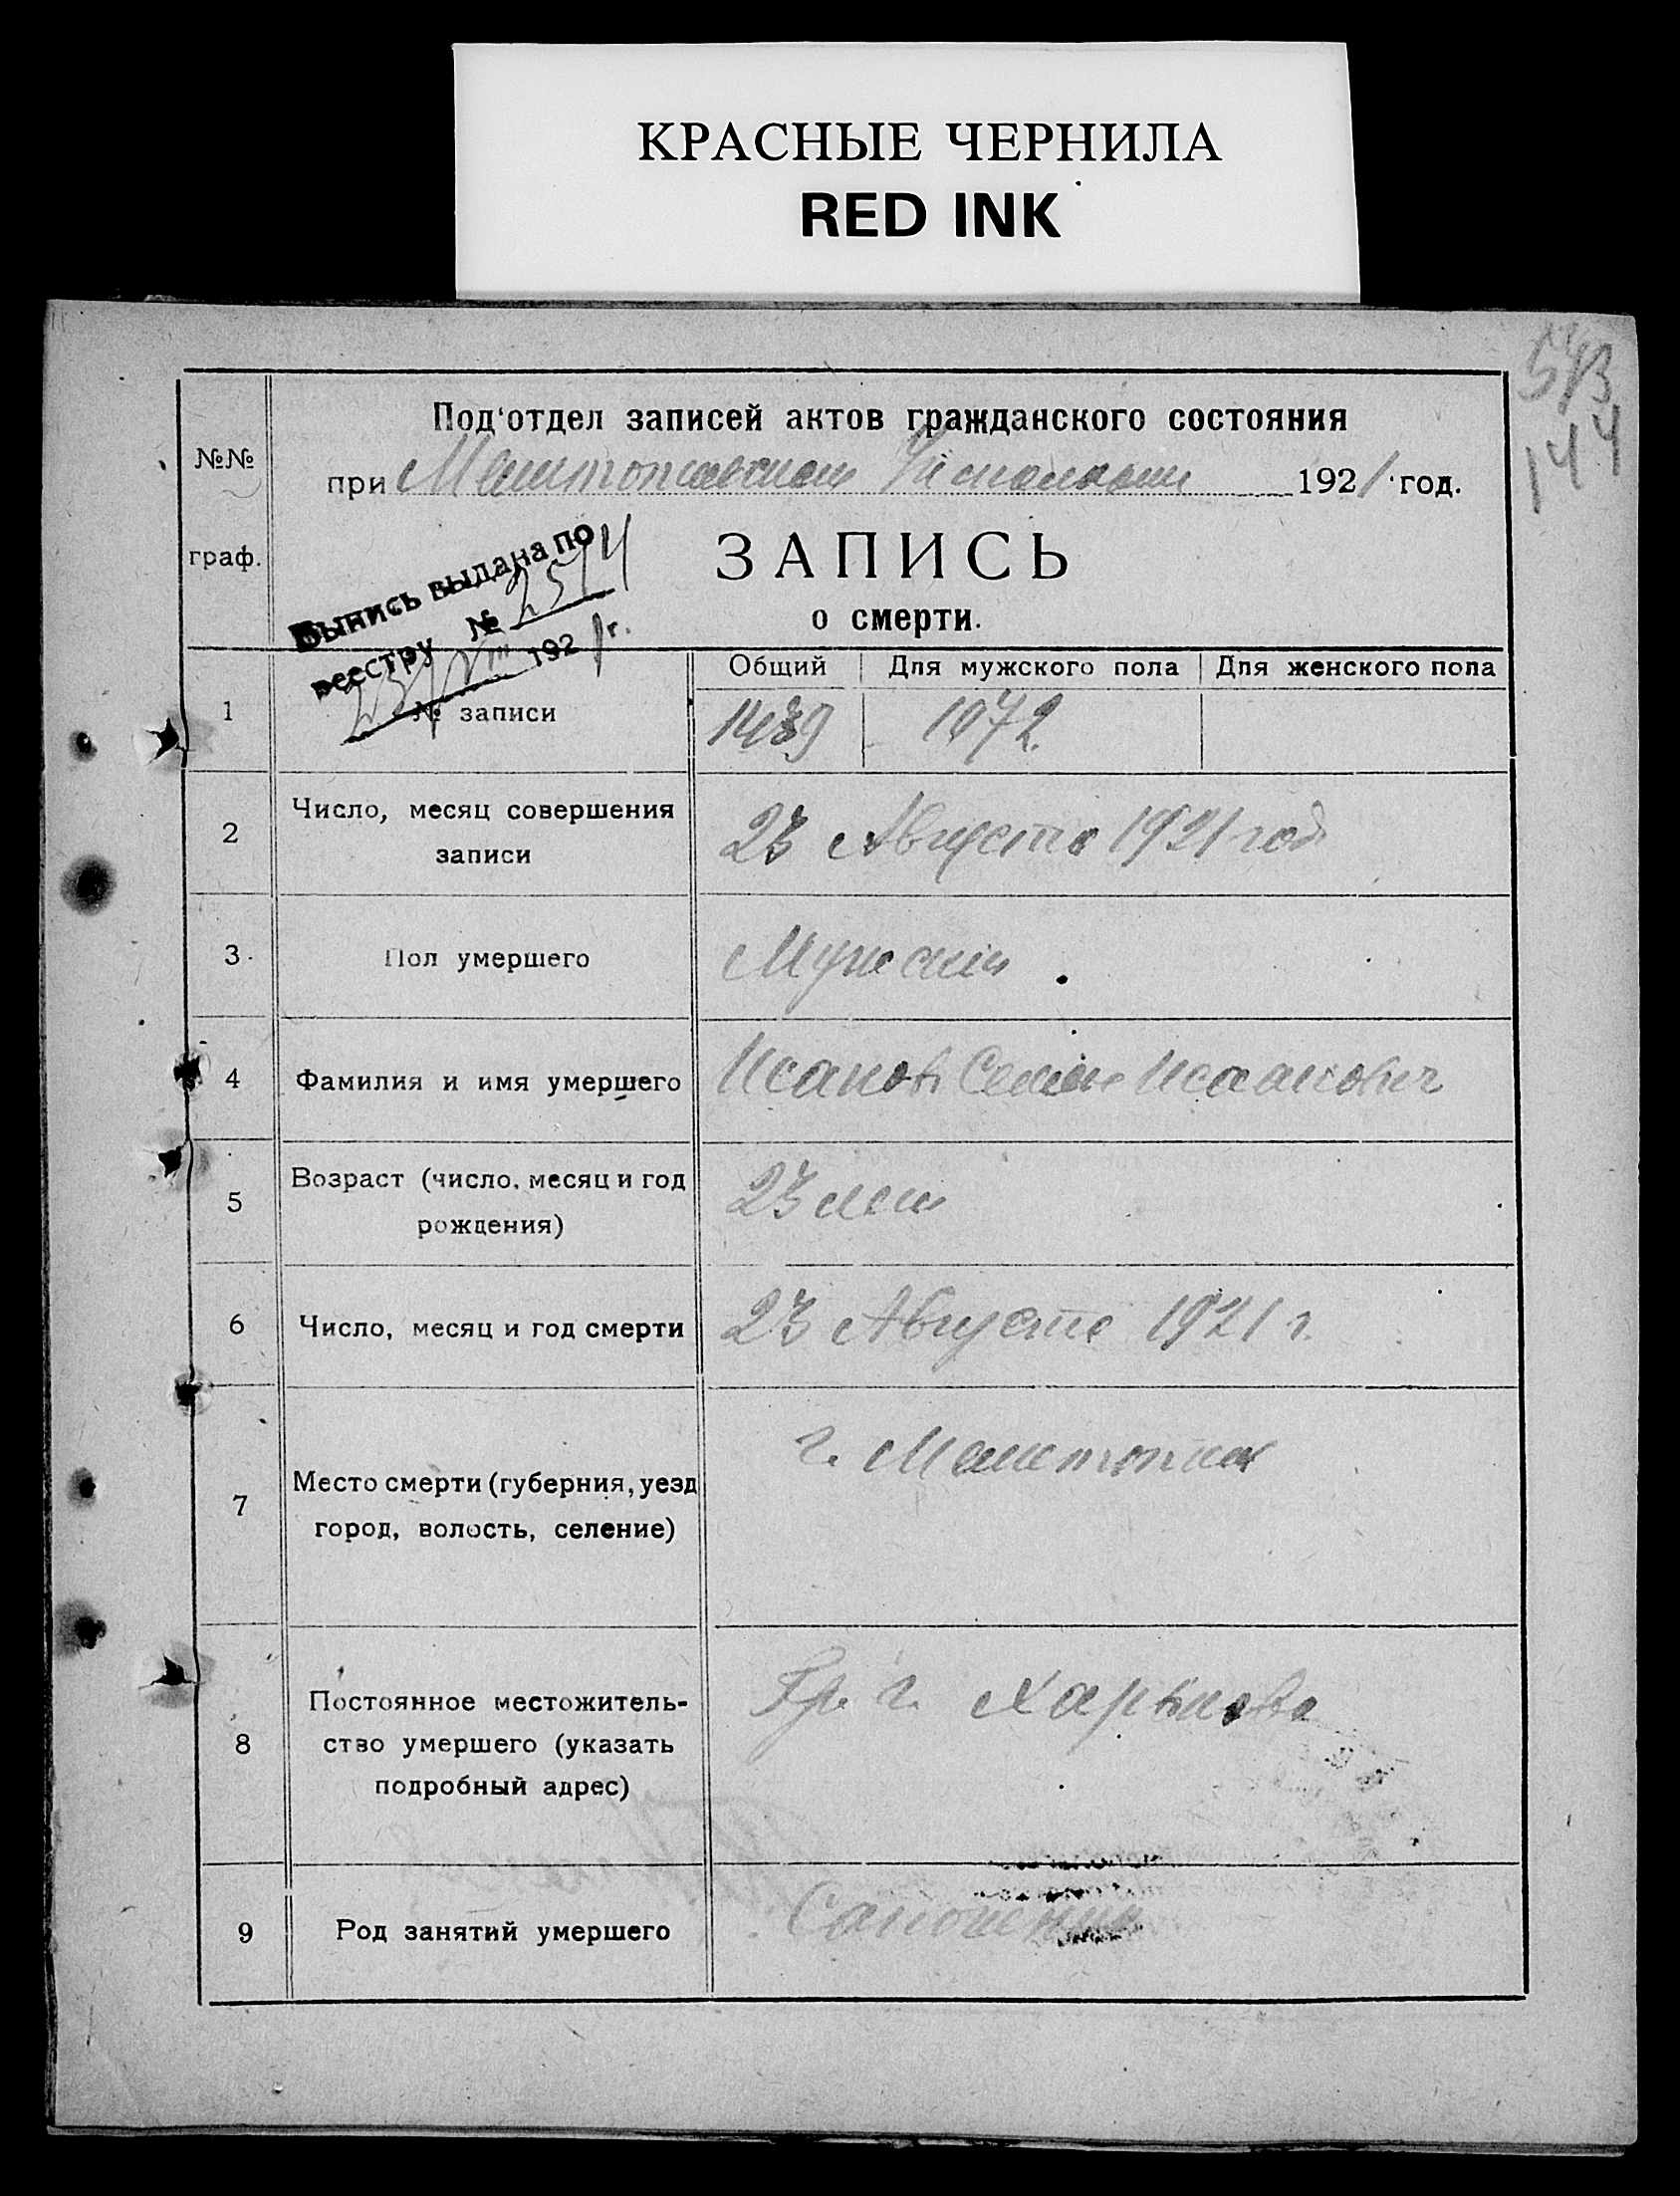 КРАСНЫЕ ЧЕРНИЛА
RED INK
144
Под'отдел записей актов гражданского состояния
№№
при 1921 год.
граф.
ЗАПИСЬ
о смерти.
Выпись выдана по
реестру №
192 г.
Общий Для мужского пола Для женского пола
1 № записи
2 Число, месяц совершения
записи
23 Августа 1921 год
3 Пол умершего Мужской
4 Фамилия и имя умершего
5 Возраст (число, месяц и год
рождения)
23 лет
6 Число, месяц и год смерти 23 Августа 1921 г.
7 Место смерти (губерния, уезд
город, волость, селение)
г.
8 Постоянное местожитель-
ство умершего (указать
подробный адрес)
Гр. г. Харькова
9 Род занятий умершего Сапожник